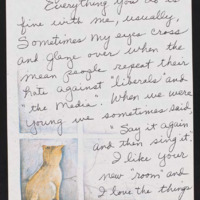 Everything you do is
fine with me, usually.
Sometimes my eyes cross
and glaze over when the
mean people repeat their
hate against "liberals" and
"the Media". When we were
young we sometimes said
"Say it again
and then sing it."
I like your
new "room" and
I love the things